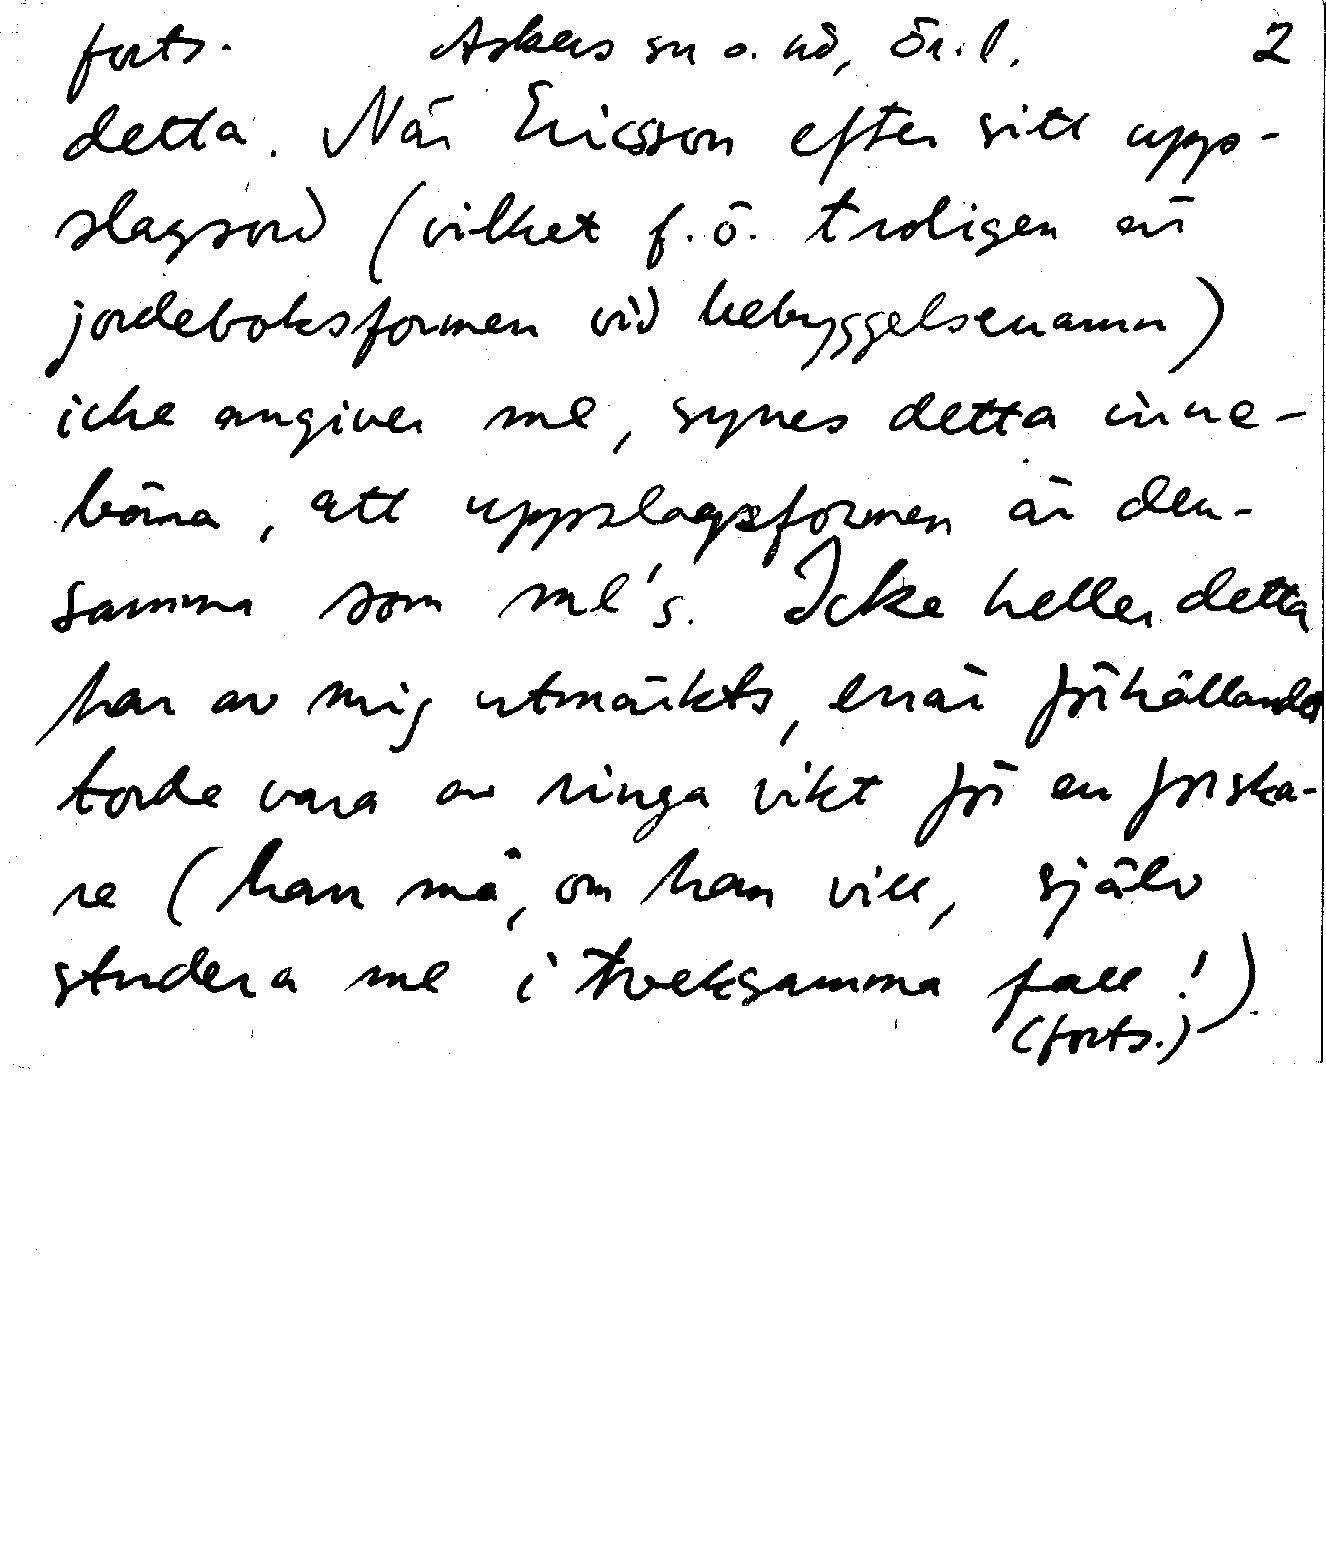 forts. Askers sn o. hd, Ör. l. 2
detta. När Ericsson efter sitt upp-
slagsord (vilket f. ö. troligen är
jordeboksformen vid bebyggelsenamn)
icke angiver ml, synes detta inne-
bära, att uppslagsformen är den-
samma som ml's. Icke heller detta
har av mig utmärkts, enär förhållandet
torde vara av ringa vikt för en forska-
re (han må, om han vill, själv
studera ml i tveksamma fall!)
(forts.)